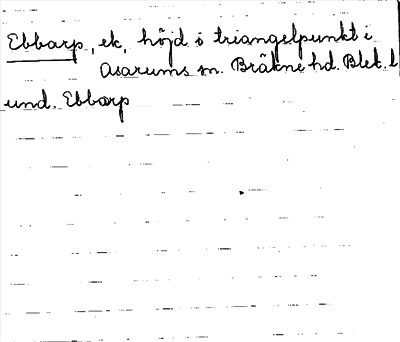 Ebbarp, ek, höjd o triangelpunkt i
Asarums sn. Bräkne hd. Blek. l
und. Ebbarp